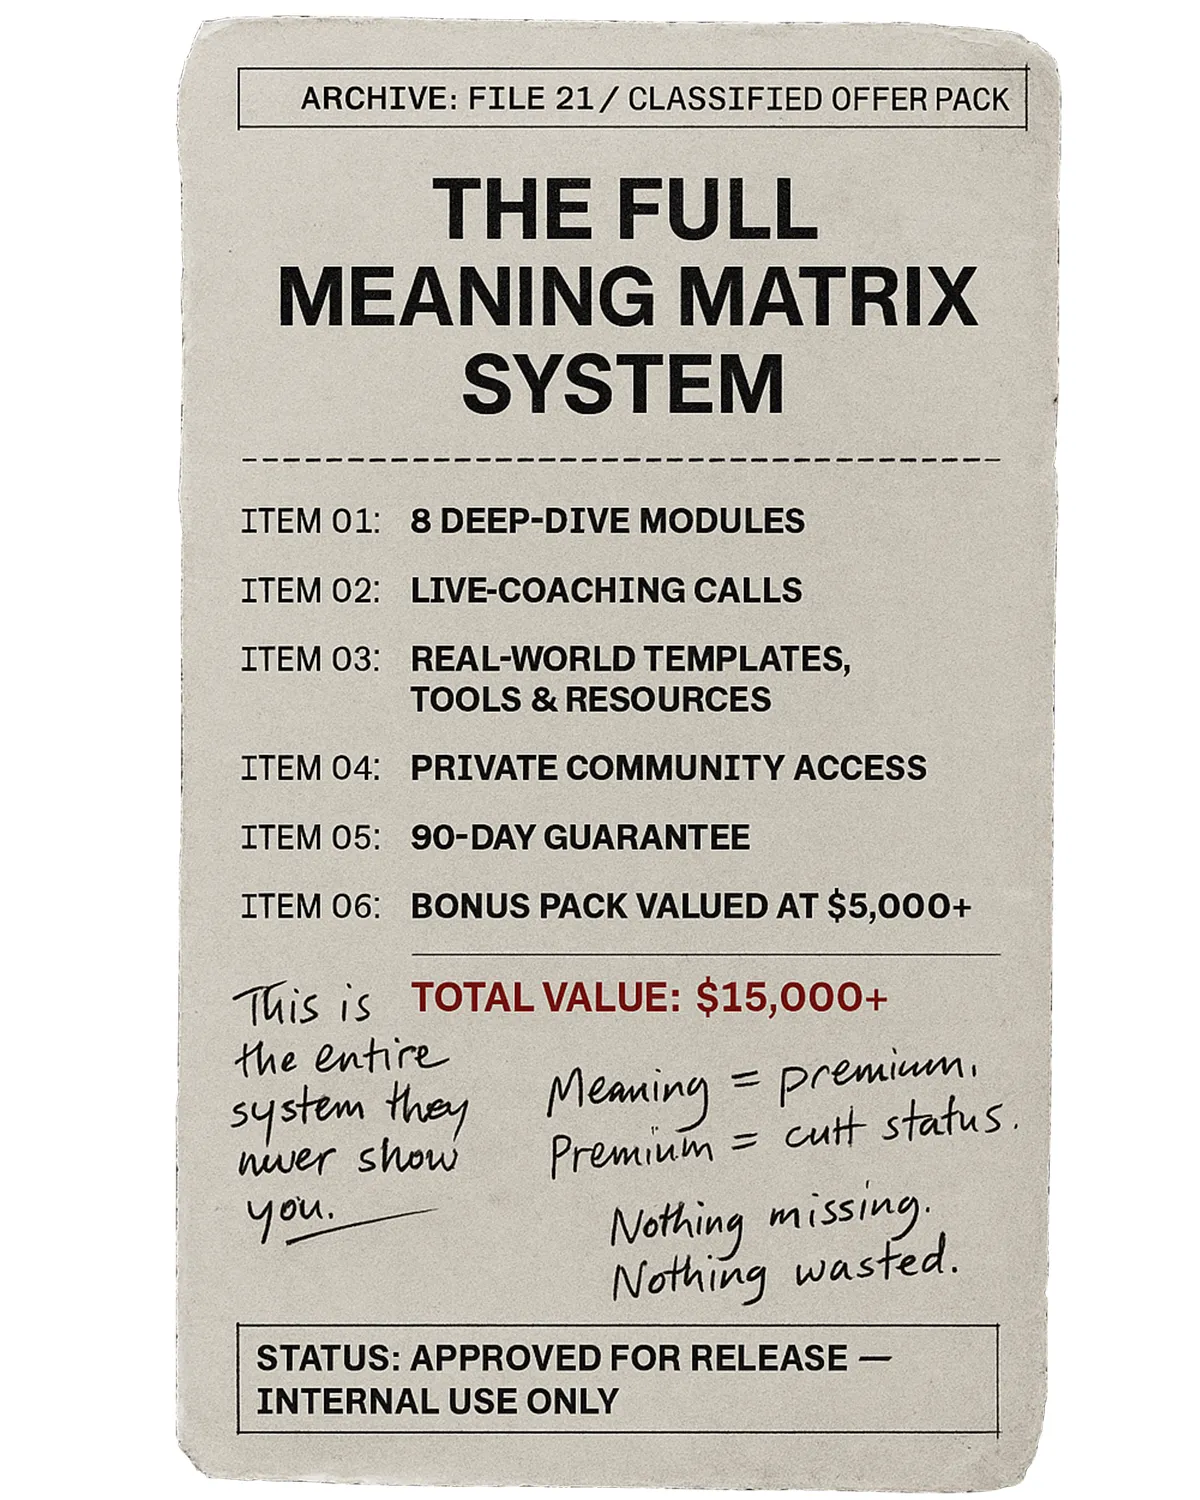 ARCHIVE: FILE 21 / CLASSIFIED OFFER PACK
THE FULL
MEANING MATRIX
SYSTEM
ITEM 01: 8 DEEP-DIVE MODULES
ITEM 02: LIVE-COACHING CALLS
ITEM 03: REAL-WORLD TEMPLATES,
TOOLS & RESOURCES
ITEM 04: PRIVATE COMMUNITY ACCESS
ITEM 05: 90-DAY GUARANTEE
ITEM 06: BONUS PACK VALUED AT $5,000+
TOTAL VALUE: $15,000+
This is
the entire
system they
never show
you.
Meaning = premium.
Premium = cult status.
Nothing missing.
Nothing wasted.
STATUS: APPROVED FOR RELEASE —
INTERNAL USE ONLY